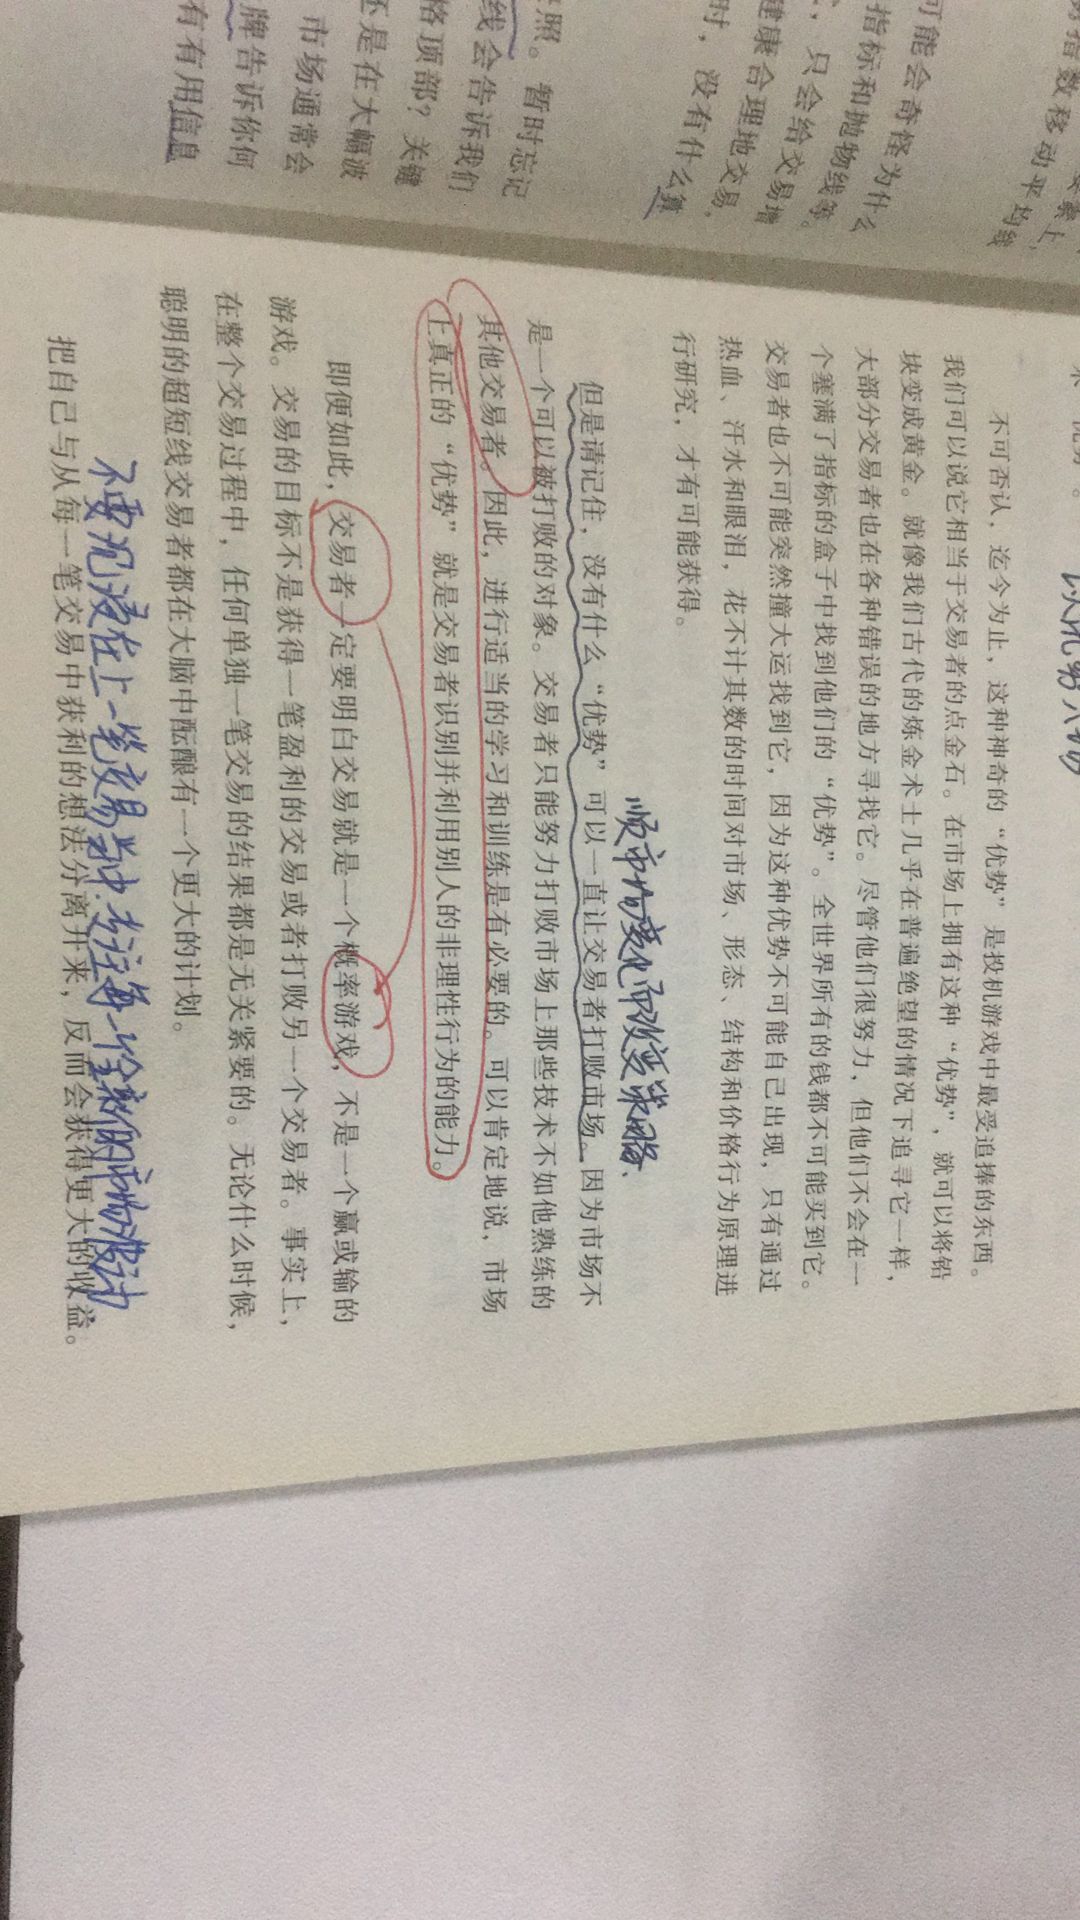 可能会奇怪为什么
指标和抛物线等。
，只会给交易增
健康合理地交易，
时，没有什么算
照。暂时忘记
线会告诉我们
格顶部？关键
还是在大幅波
市场通常会
牌告诉你何
有有用信息
不可否认，迄今为止，这种神奇的“优势”是投机游戏中最受追捧的东西。
我们可以说它相当于交易者的点金石。在市场上拥有这种“优势”，就可以将铅
块变成黄金。就像我们古代的炼金术士几乎在普遍绝望的情况下追寻它一样，
大部分交易者也在各种错误的地方寻找它。尽管他们很努力，但他们不会在一
个塞满了指标的盒子中找到他们的“优势”。全世界所有的钱都不可能买到它。
交易者也不可能突然撞大运找到它，因为这种优势不可能自己出现，只有通过
热血、汗水和眼泪，花不计其数的时间对市场、形态、结构和价格行为原理进
行研究，才有可能获得。
顺市场变化而改变策略.
但是请记住，没有什么“优势”可以一直让交易者打败市场。因为市场不
是一个可以被打败的对象。交易者只能努力打败市场上那些技术不如他熟练的
其他交易者。因此，进行适当的学习和训练是有必要的。可以肯定地说，市场
上真正的“优势”就是交易者识别并利用别人的非理性行为的能力。
即便如此，交易者一定要明白交易就是一个概率游戏，不是一个赢或输的
游戏。交易的目标不是获得一笔盈利的交易或者打败另一个交易者。事实上，
在整个交易过程中，任何单独一笔交易的结果都是无关紧要的。无论什么时候，
聪明的超短线交易者都在大脑中酝酿有一个更大的计划。
不要沉浸在上一笔交易当中.专注每一轮新的市场波动
把自己与从每一笔交易中获利的想法分离开来，反而会获得更大的收益。